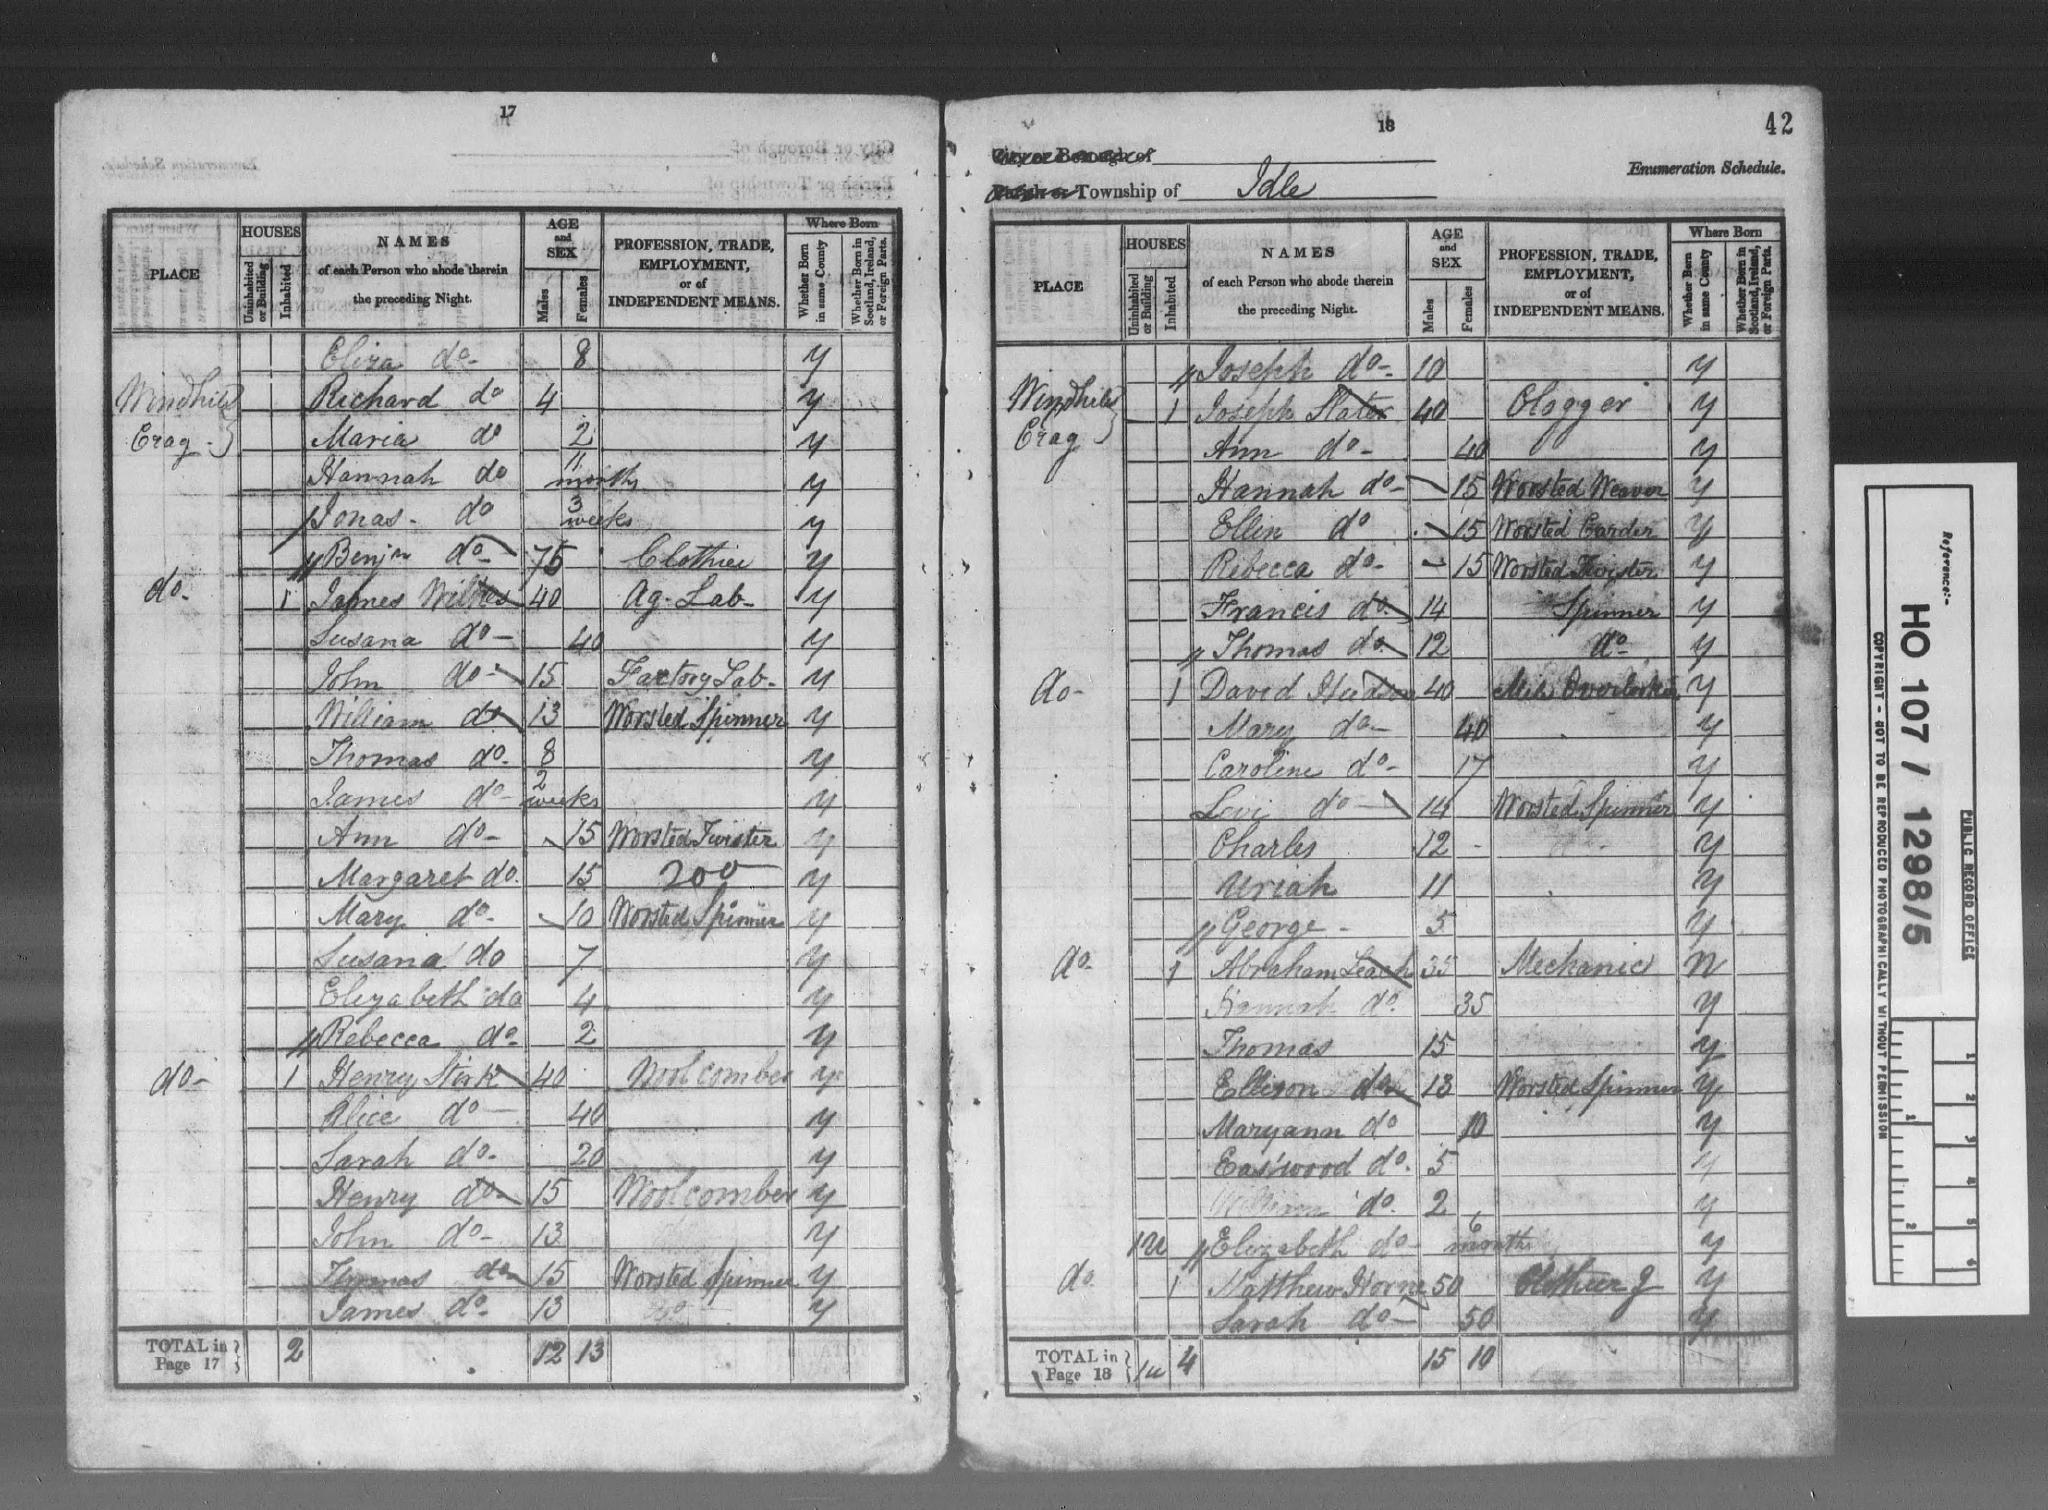 17
PLACE HOUSES Uninhabited or Building Inhabited NAMES of each Person who abode therein the preceding Night. AGE and SEX Males Females PROFESSION, TRADE, EMPLOYMENT, or of INDEPENDENT MEANS. Where Born Whether Born in same County Whether Born in Scotland, Ireland, or Foreign Parts.
Eliza do- 8 y
Windhill Crag Richard do 4 y
Maria do 2 y
Hannah do 11 months y
Jonas- do 3 weeks y
Benjn do- 75 Clothier y
do- 1 James Wilkes 40 Ag. Lab- y
Susana do- 40 y
John do- 15 Factory Lab- y
William do 13 Worsted Spinner y
Thomas do- 8 y
James do- 2 weeks y
Ann do- 15 Worsted Twister y
Margaret do. 15 200 y
Mary do- 10 Worsted Spinner y
Susana do 7 y
Elizabeth do 4 y
Rebecca do- 2 y
do- 1 Henry Stirk 40 Woolcomber y
Alice do- 40 y
Sarah do- 20 y
Henry do- 15 Woolcomber y
John do- 13 y
Thomas do 15 Worsted Spinner y
James do- 13 do y
TOTAL in Page 17 2 12 13
18
42
City or Borough of
Parish or Township of Idle
Enumeration Schedule.
PLACE HOUSES Uninhabited or Building Inhabited NAMES of each Person who abode therein the preceding Night. AGE and SEX Males Females PROFESSION, TRADE, EMPLOYMENT, or of INDEPENDENT MEANS. Where Born Whether Born in same County Whether Born in Scotland, Ireland, or Foreign Parts.
Joseph do- 10 y
Windhill Crag 1 Joseph Slater 40 Clogger y
Ann do- 40 y
Hannah do- 15 Worsted Weaver y
Ellin do 15 Worsted Carder y
Rebecca do- 15 Worsted Twister y
Francis do. 14 Spinner y
Thomas do. 12 do- y
do- 1 David Hudson 40 Mill Overlooker y
Mary do- 40 y
Caroline do- 17 y
Levi do- 14 Worsted Spinner y
Charles 12 y
Uriah 11 y
George - 5 y
do- 1 Abraham Leach 35 Mechanic N
Hannah do. 35 y
Thomas 15 y
Ellison do 13 Worsted Spinner y
Maryann do 10 y
Eastwood do. 5 y
William do. 2 y
1u Elizabeth do- 6 months y
do. 1 Matthew Horne 50 Clothier J y
Sarah do- 50 y
TOTAL in Page 18 1u 4 15 10
Reference:-
HO 107 / 1298/5
PUBLIC RECORD OFFICE
COPYRIGHT - NOT TO BE REPRODUCED PHOTOGRAPHICALLY WITHOUT PERMISSION
1 2 3 4 5 6
1 2